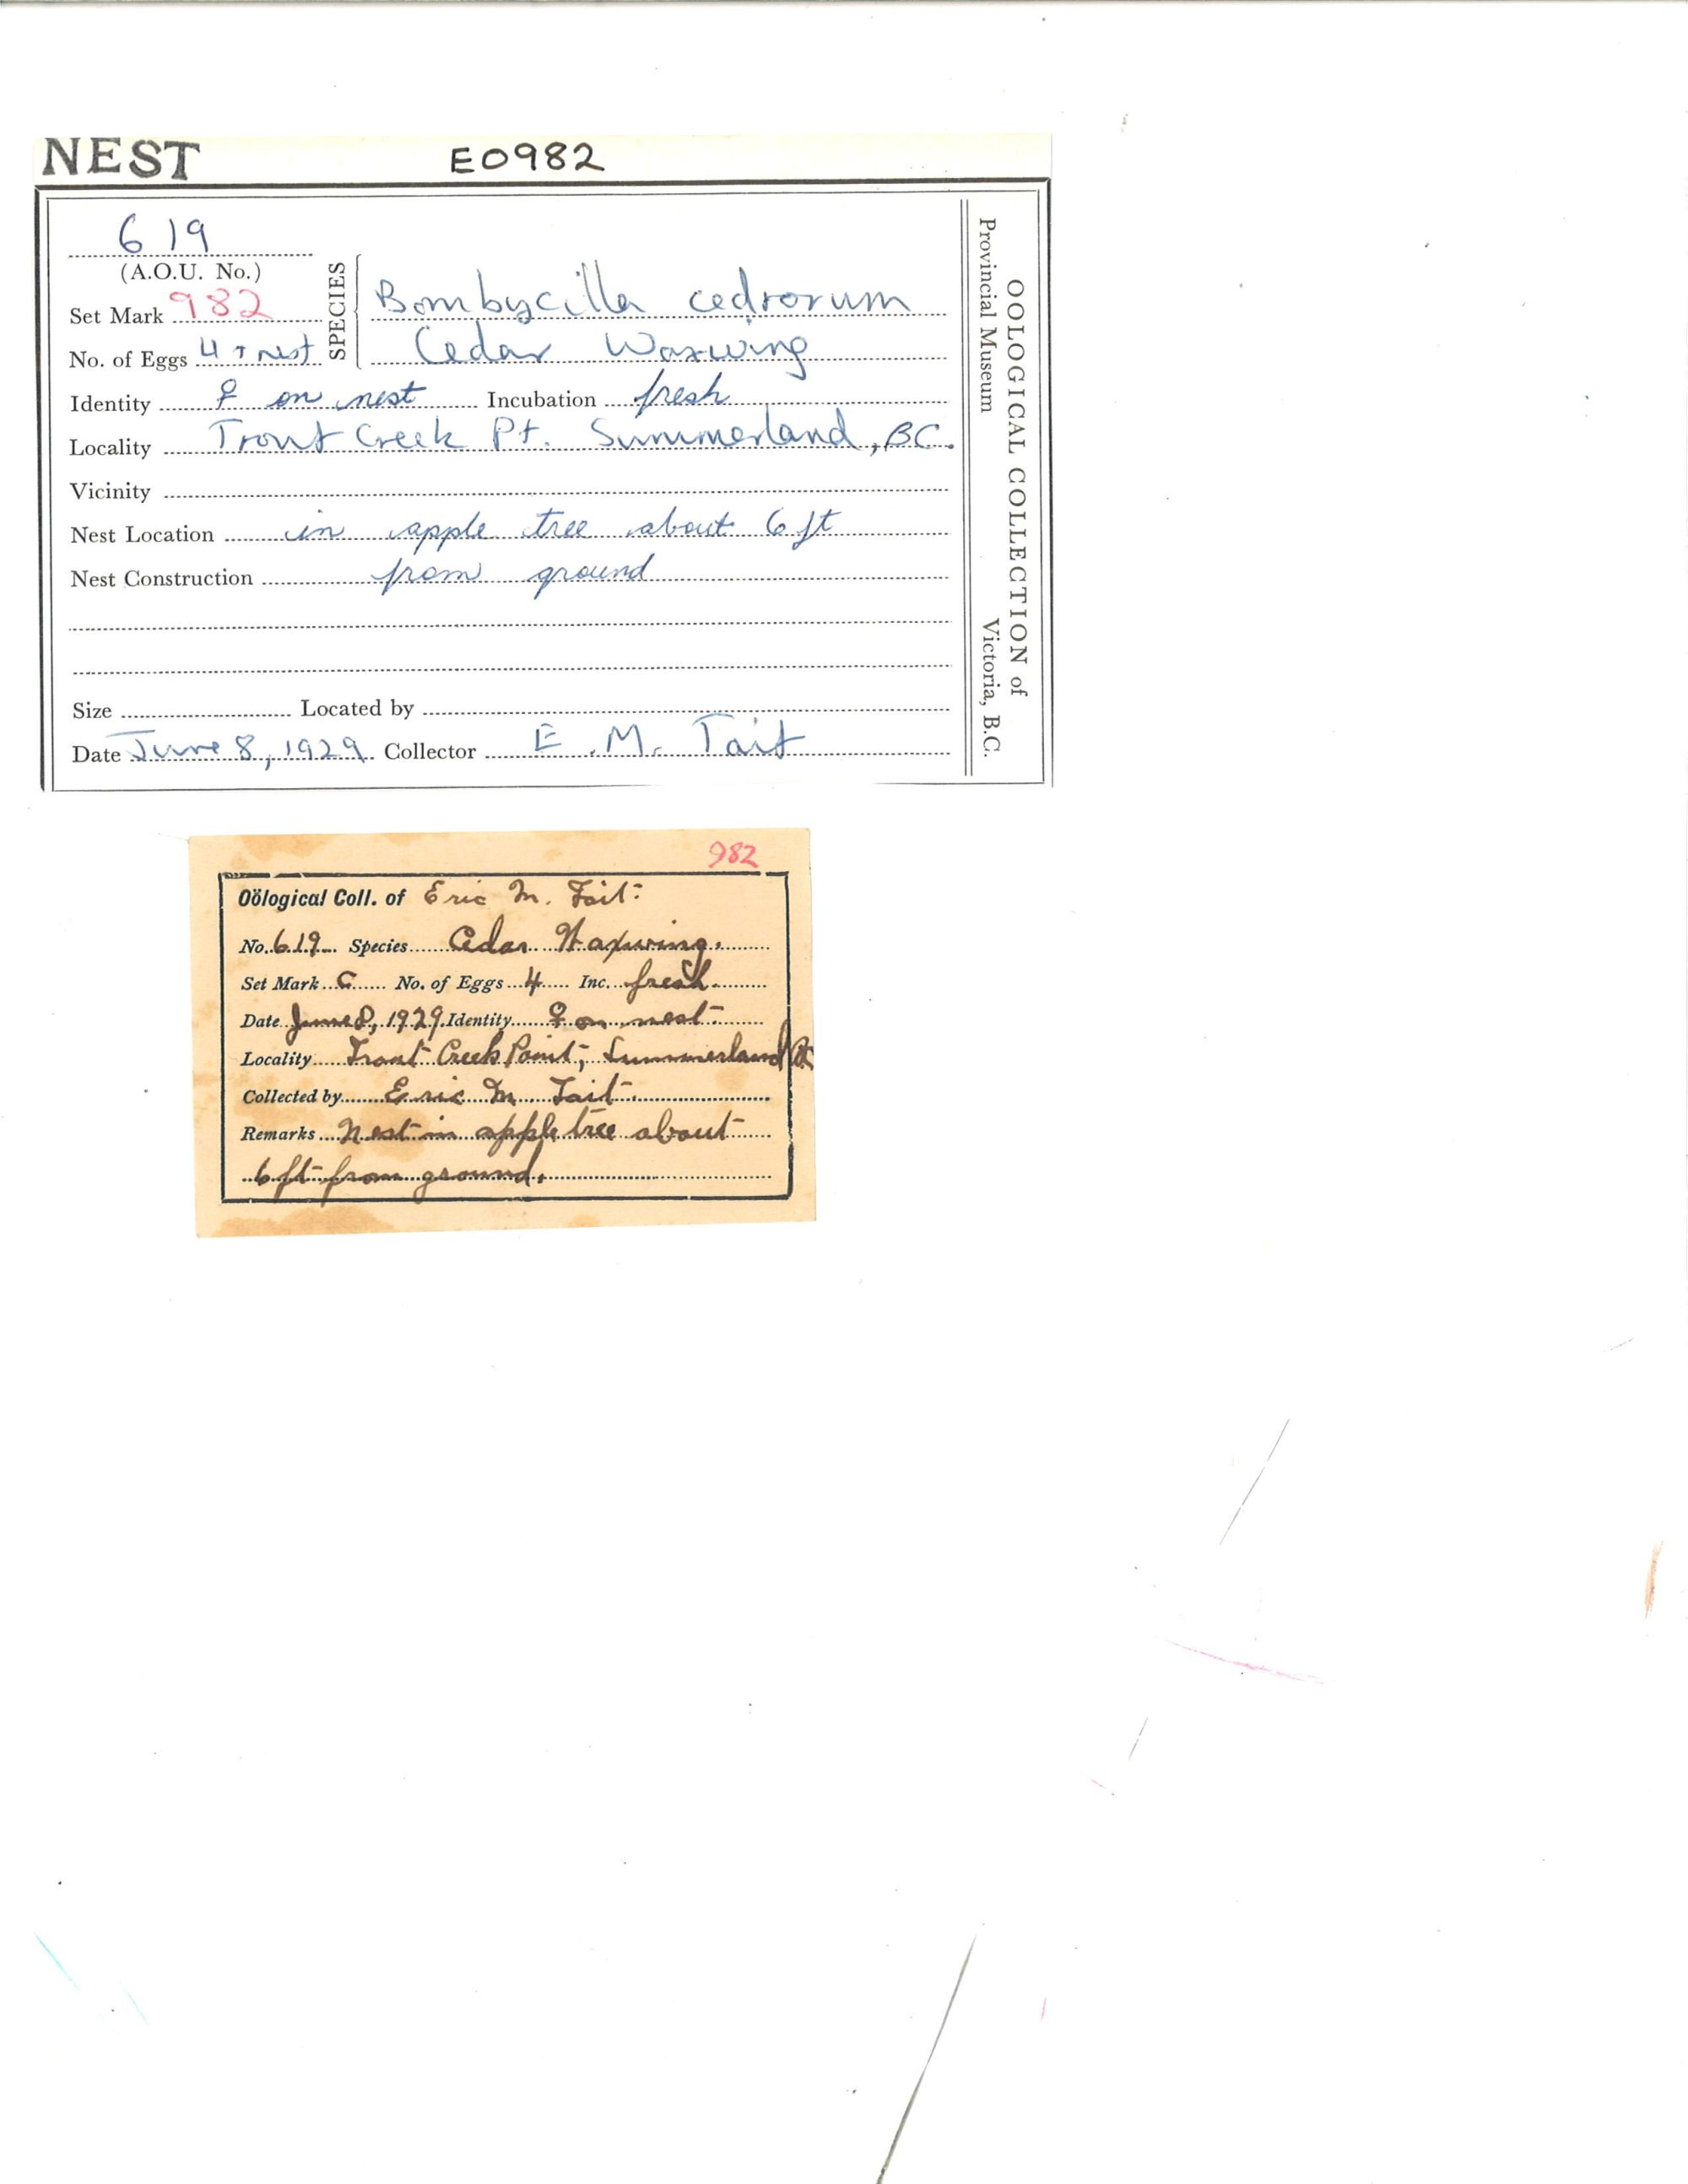 NEST E0982
619
(A.O.U. No.)
Set Mark 982
SPECIES
Bombycilla cedrorum
No. of Eggs 4 + nest
Cedar Waxwing
Identity ♀ on nest Incubation fresh
Locality Trout Creek Pt. Summerland, BC.
Vicinity
Nest Location in apple tree about 6 ft
Nest Construction from ground
Size Located by
Date June 8, 1929 Collector E. M. Tait
OOLOGICAL COLLECTION of
Provincial Museum Victoria, B.C.
982
Oölogical Coll. of Eric M. Tait.
No. 619 Species Cedar Waxwing.
Set Mark C No. of Eggs 4 Inc. fresh
Date June 8, 1929. Identity ♀ on nest.
Locality Trout Creek Point, Summerland
Collected by Eric M. Tait.
Remarks Nest in apple tree about
6 ft from ground.